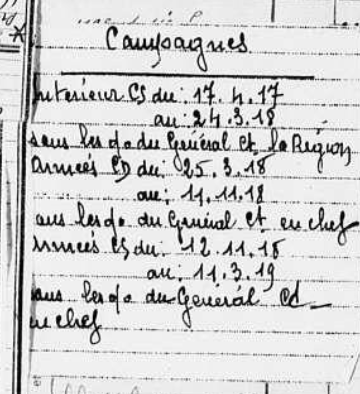 Campagnes
Intérieur CS du: 17.4.17
au: 24.3.18
sous les do du Général Ct la Région
Armées CD du: 25.3.18
au: 11.11.18
sous les do du Général Ct en chef
Armées CS du: 12.11.18
au: 11.3.19
sous les do du Général Cd
en chef